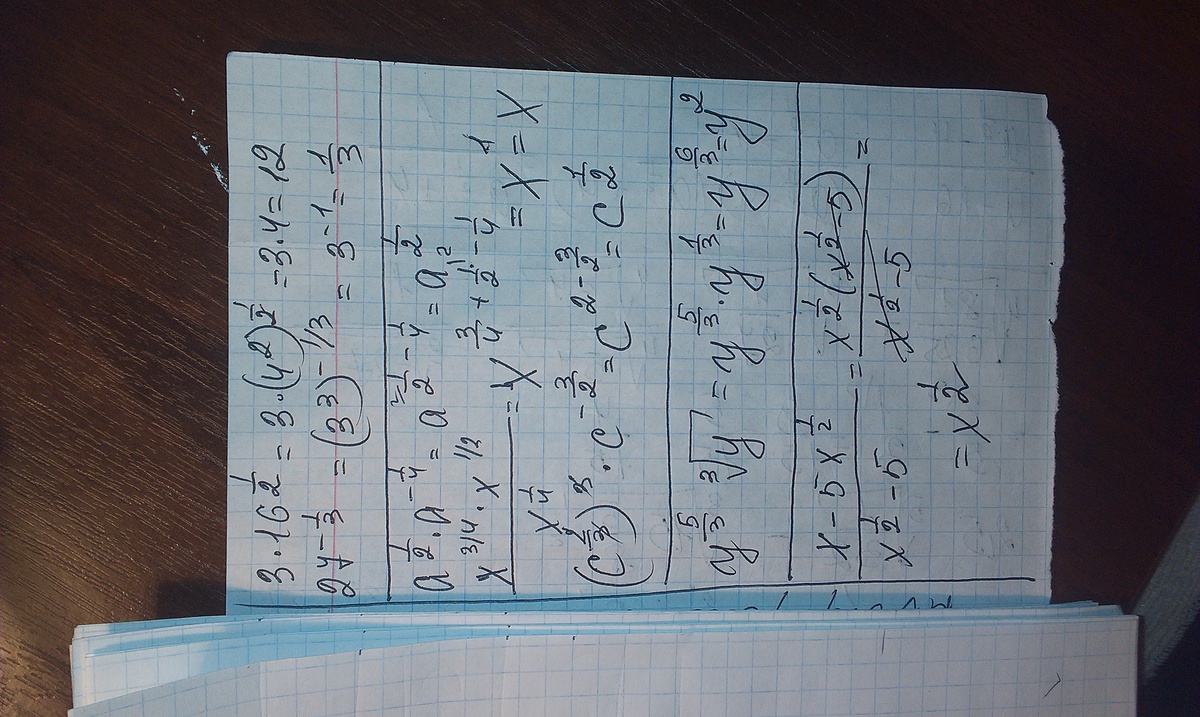 3·16^(1/2) = 3·(4²)^(1/2) = 3·4 = 12
27^(-1/3) = (3³)^(-1/3) = 3^(-1) = 1/3
a^(1/2)·a^(-1/4) = a^(1/2 - 1/4) = a^(1/2)
(x^(3/4)·x^(1/2))/x^(1/4) = x^(3/4 + 1/2 - 1/4) = x^1 = x
(c^(2/3))^3·c^(-3/2) = c^(2 - 3/2) = c^(1/2)
y^(5/3) ∛y = y^(5/3)·y^(1/3) = y^(6/3) = y²
(x - 5x^(1/2))/(x^(1/2) - 5) = (x^(1/2)(x^(1/2) - 5))/(x^(1/2) - 5) =
= x^(1/2)